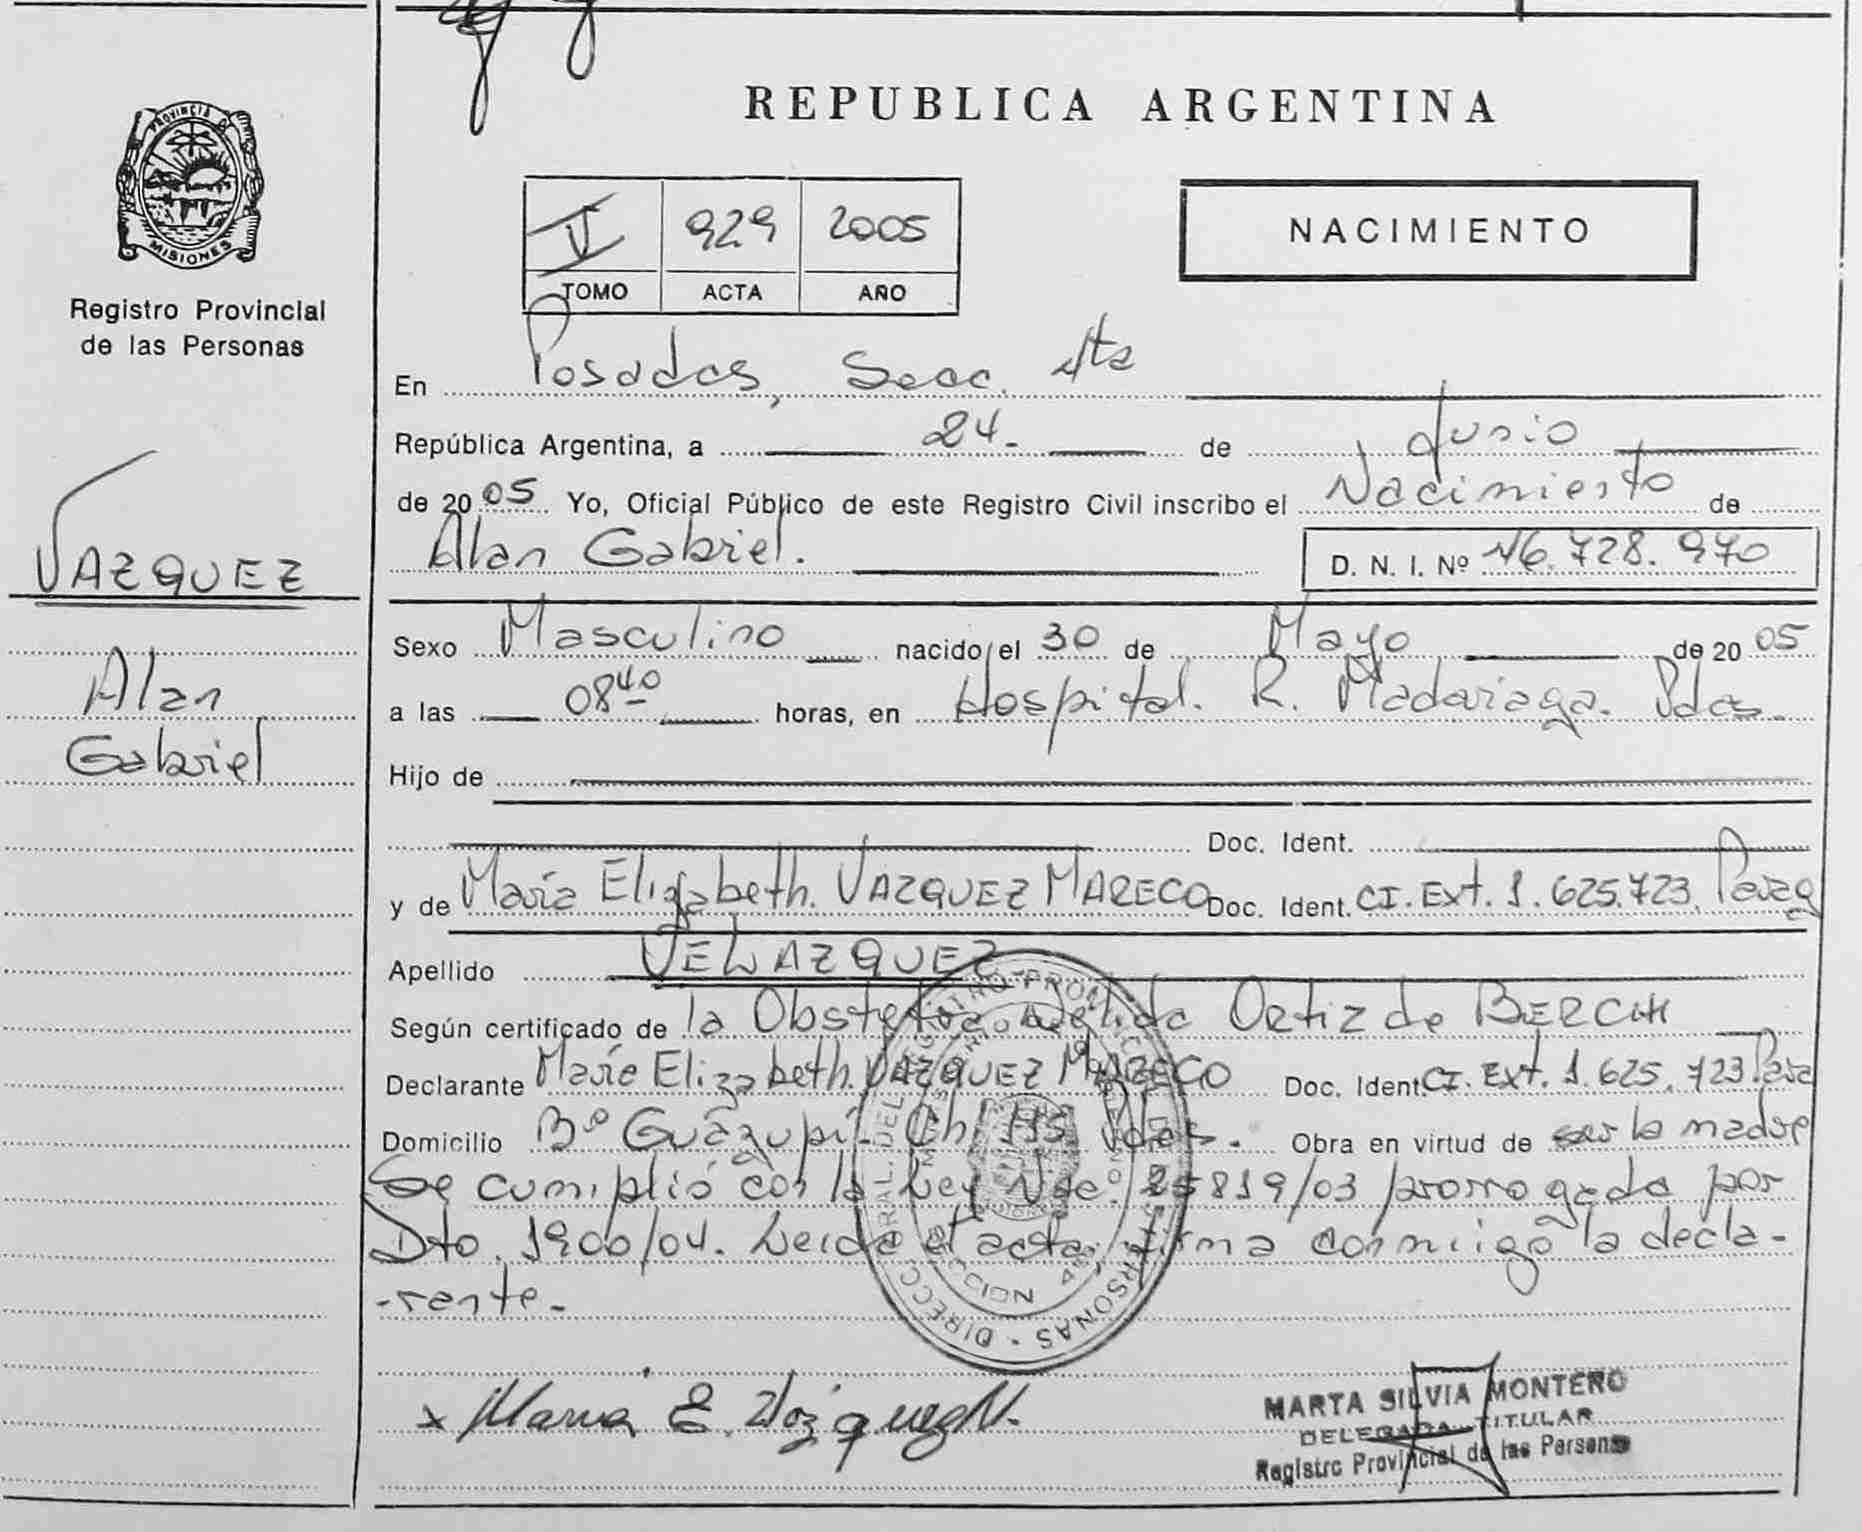 PROVINCIA DE
MISIONES
Registro Provincial
de las Personas
VAZQUEZ
Alan
Gabriel
REPUBLICA ARGENTINA
V 929 2005
TOMO ACTA AÑO
NACIMIENTO
En Posadas, Secc. 4ta
República Argentina, a 24- de Junio
de 2005 Yo, Oficial Público de este Registro Civil inscribo el Nacimiento de
Alan Gabriel. D. N. I. Nº 46.728.970
Sexo Masculino nacido el 30 de Mayo de 2005
a las 08 40 horas, en Hospital. R. Madariaga. Pdas.
Hijo de
Doc. Ident.
y de María Elizabeth. VAZQUEZ MARECO Doc. Ident. CI. Ext. 1.625.723. Parag
Apellido VELAZQUEZ
Según certificado de la Obstetra Ortiz de
Declarante María Elizabeth. VAZQUEZ MARECO Doc. Ident. CI. Ext. 1.625.723 Para
Domicilio Bº Guazupi. Ch. Pdas. Obra en virtud de ser la madre
Se cumplió con la Ley Nac. 25819/03 prorrogada por
Dto. 1900/04. Leida el acta, firma conmigo la decla-
-rante-
x Maria E. Vazquez M.
MARTA SILVIA MONTERO
DELEGADA TITULAR
Registro Provincial de las Personas